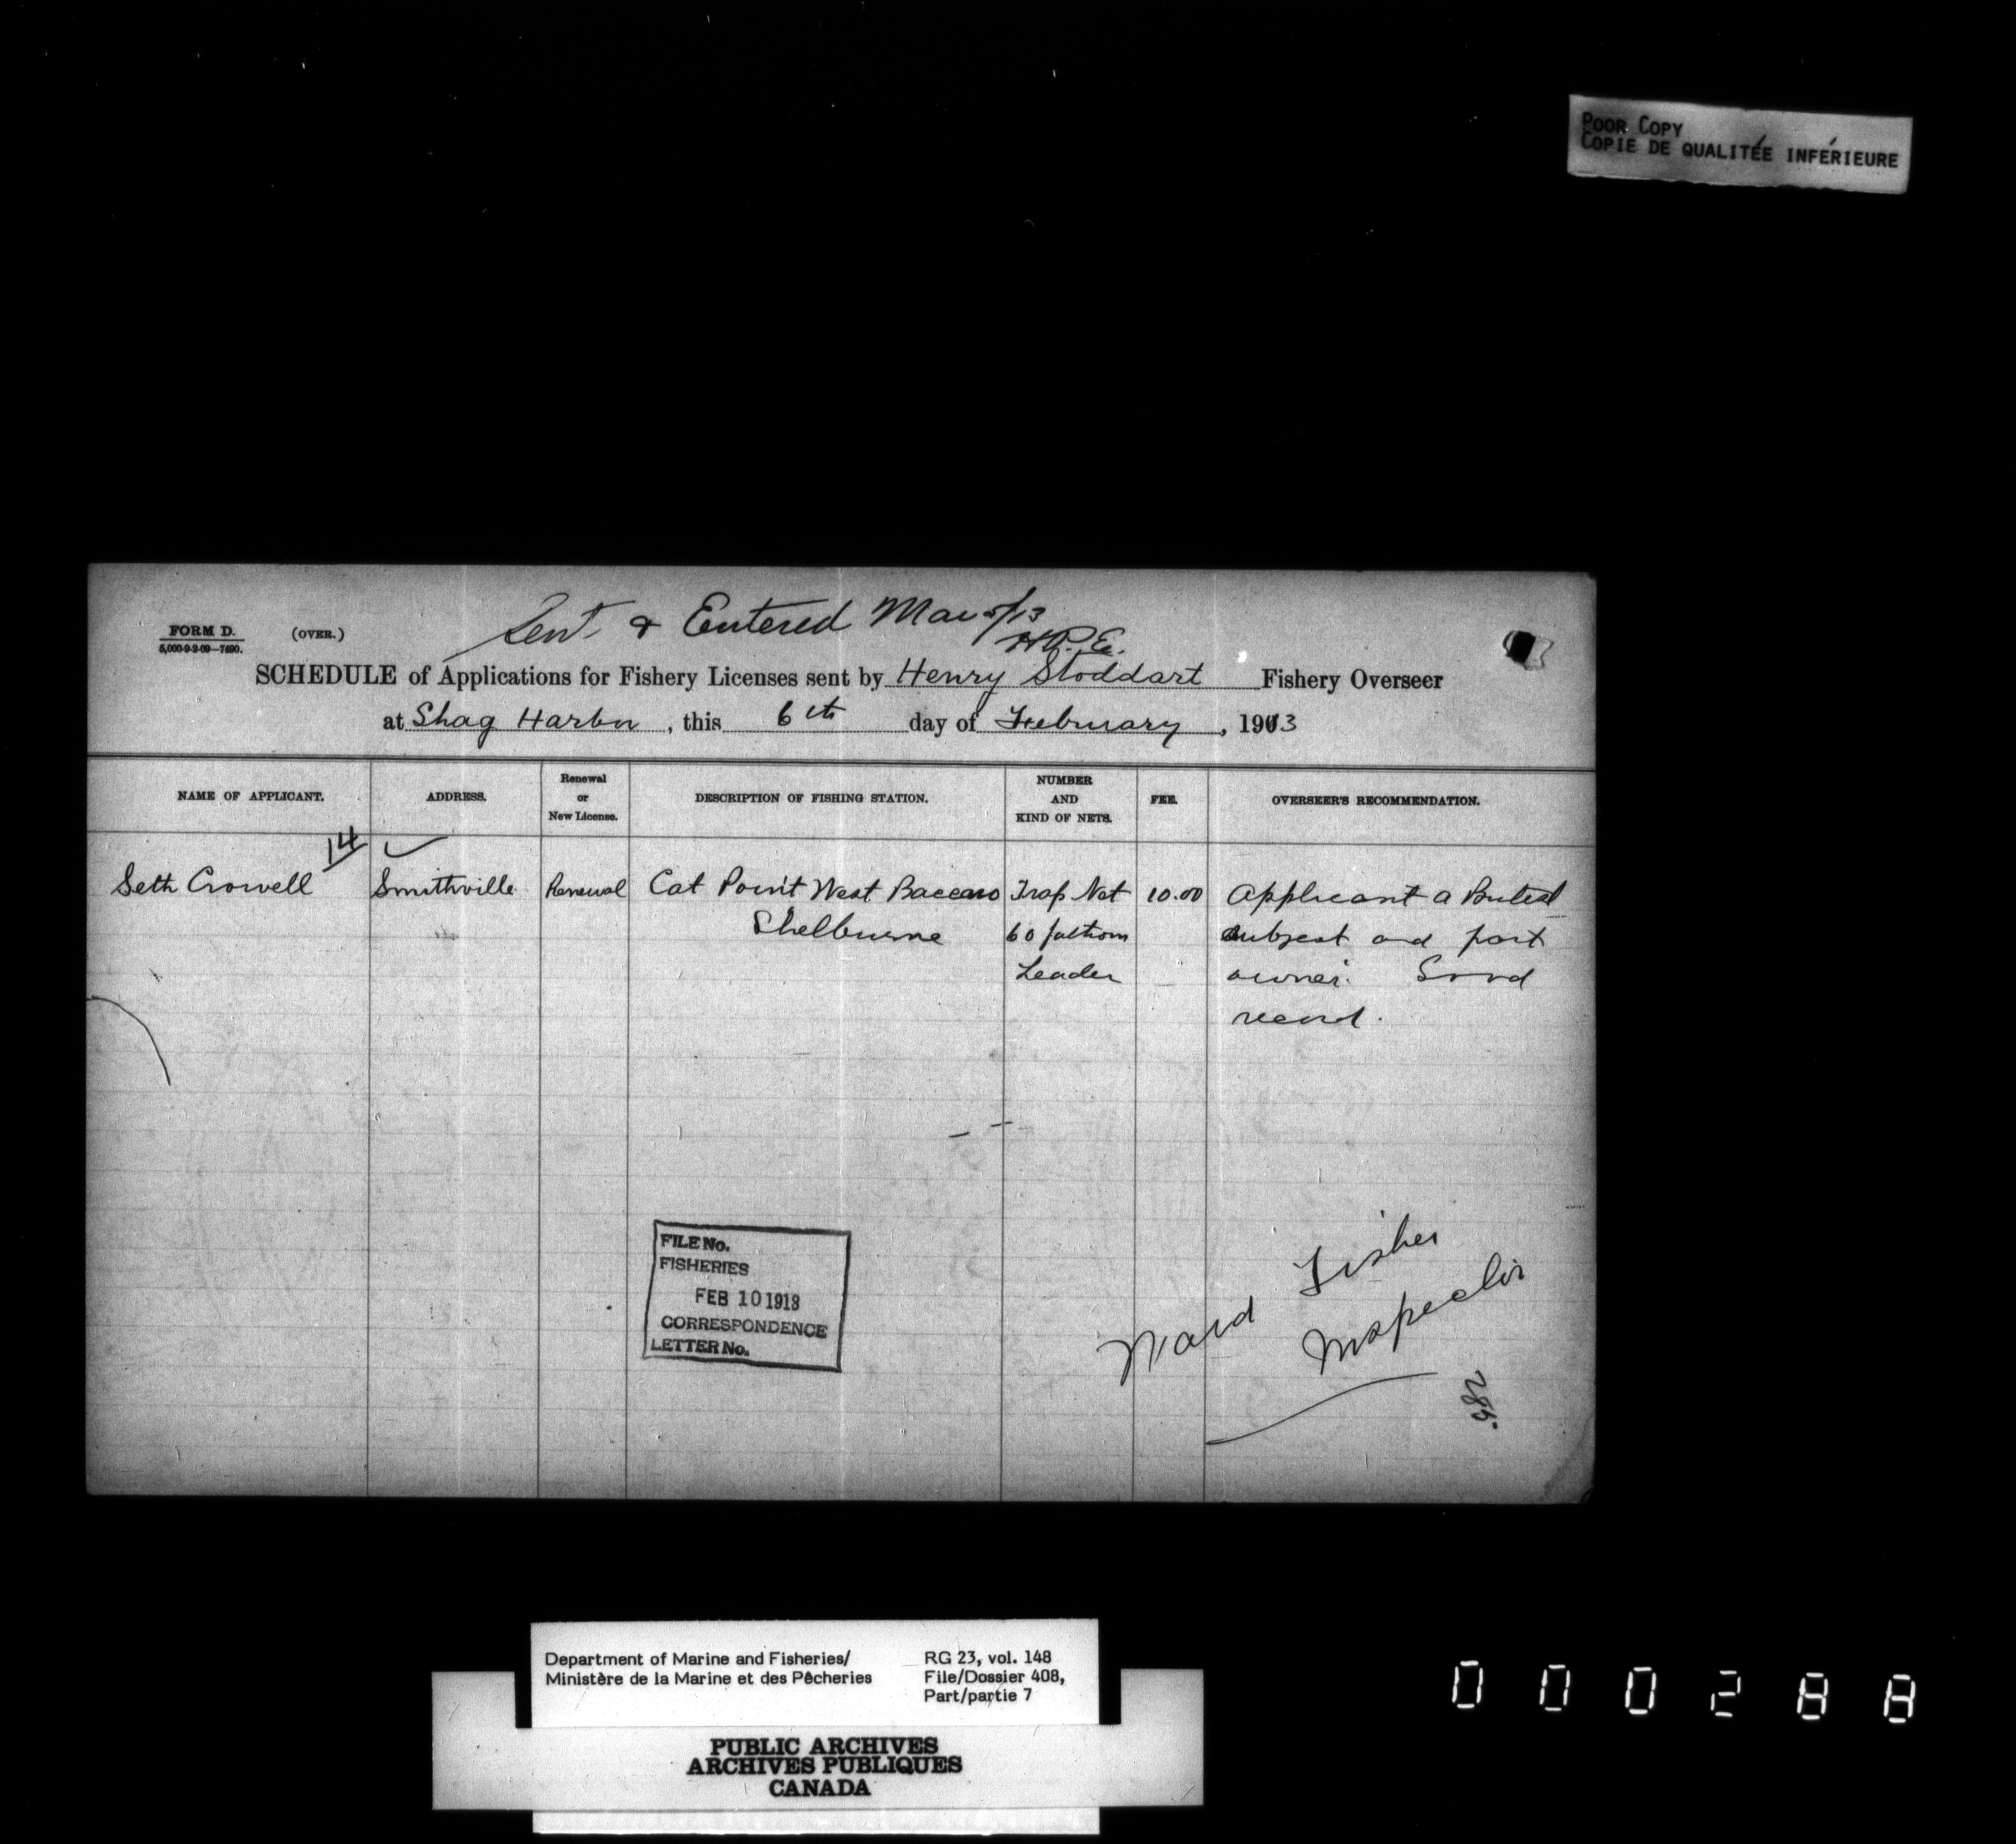 POOR COPY
COPIE DE QUALITÉE INFÉRIEURE
Sent & Entered Mar 5/13
H.P.E.
FORM D.
5,000-9-2-09—7490.
(OVER.)
SCHEDULE of Applications for Fishery Licenses sent by Henry Stoddart Fishery Overseer
at Shag Harbor, this 6th day of February, 1913
NAME OF APPLICANT.
ADDRESS.
Renewal
or
New License.
DESCRIPTION OF FISHING STATION.
NUMBER
AND
KIND OF NETS.
FEE.
OVERSEER'S RECOMMENDATION.
14
Seth Crowell
Smithville
Renewal
Cat Point West Baccaro
Shelburne
Trap Net
60 fathom
Leader
10.00
Applicant a British
subject and part
owner. Good
record.
FILE No.
FISHERIES
FEB 10 1913
CORRESPONDENCE
LETTER No.
Ward Fisher
Inspector
285
Department of Marine and Fisheries/
Ministère de la Marine et des Pêcheries
RG 23, vol. 148
File/Dossier 408,
Part/partie 7
PUBLIC ARCHIVES
ARCHIVES PUBLIQUES
CANADA
000288